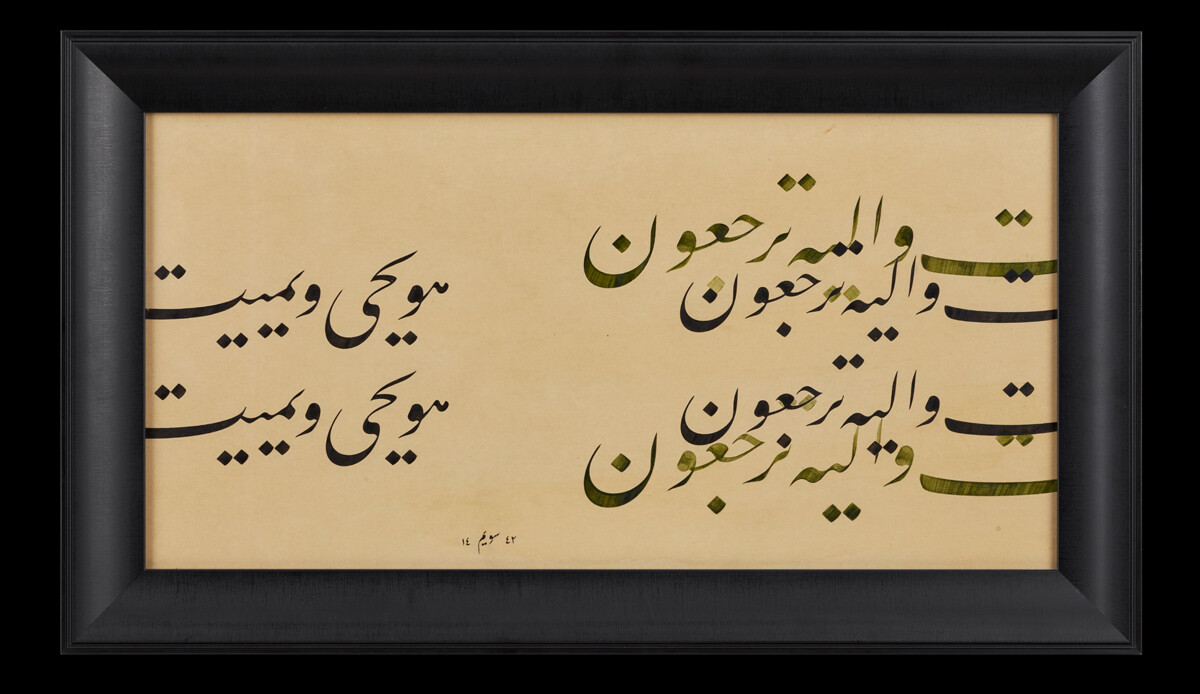 ت واليه ترجعون
ت واليه ترجعون هو يحي ويميت
ت واليه ترجعون هو يحي ويميت
ت واليه ترجعون
٤٢ سويم ١٤